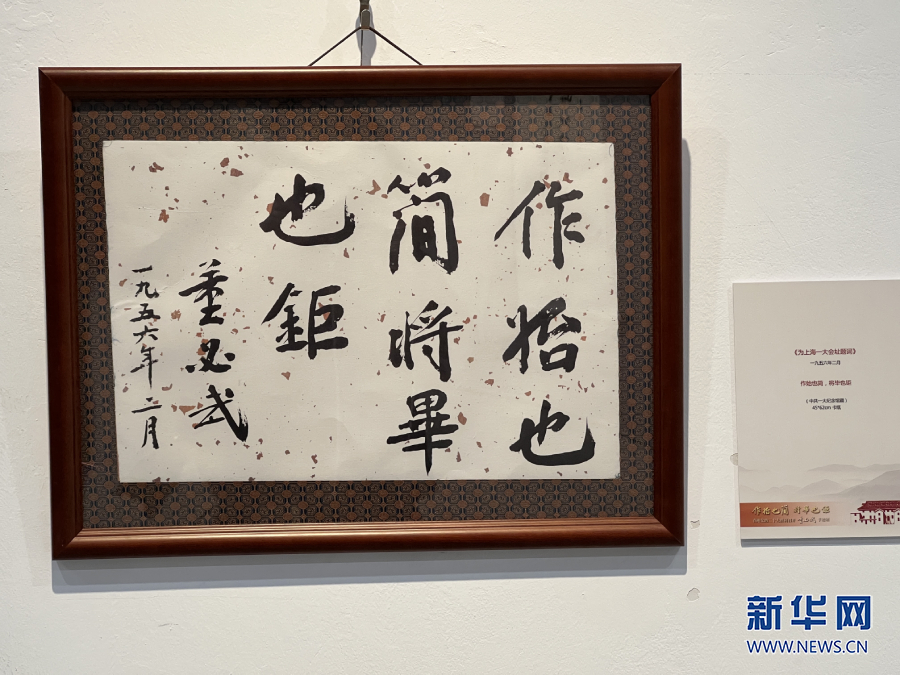 作始也
簡將畢
也鉅
董必武
一九五六年二月
《为上海一大会址题词》
一九五六年二月
作始也简，将毕也钜
（中共一大纪念馆藏）
45*62cm 卡纸
作始也簡 將畢也鉅
新华网
WWW.NEWS.CN